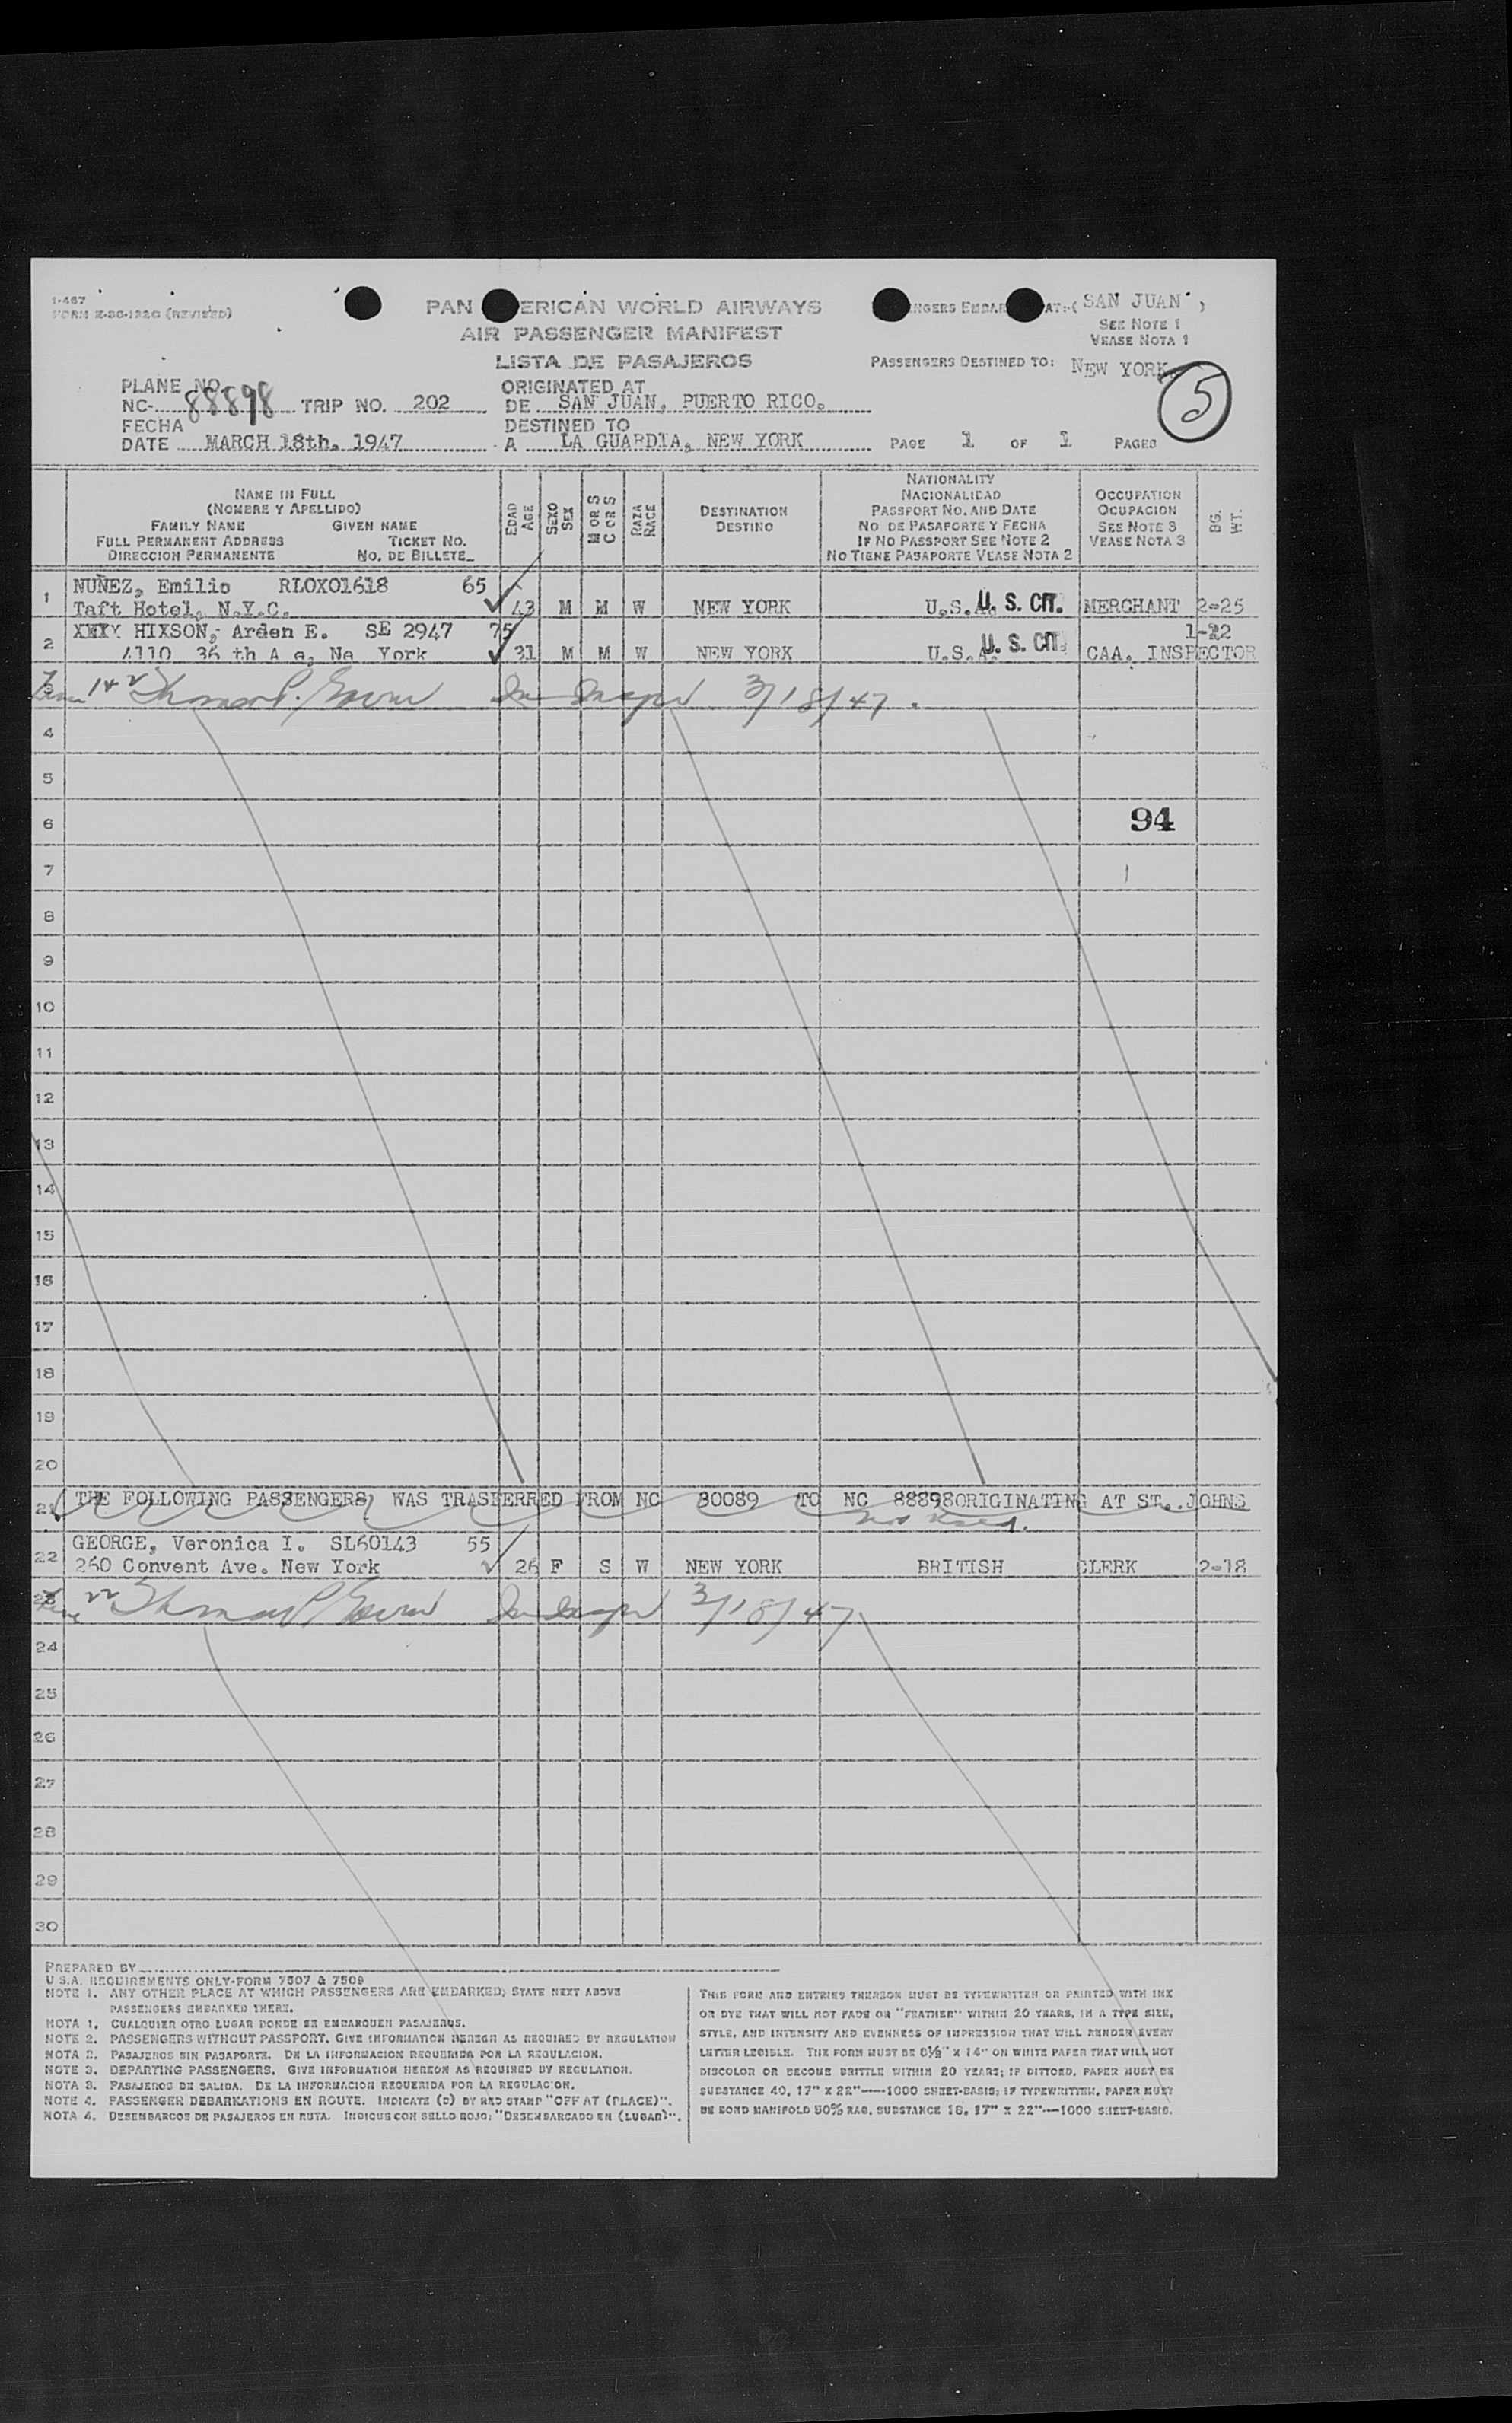 1-467
FORM X-DC-122G (REVISED)
PAN ERICAN WORLD AIRWAYS
AIR PASSENGER MANIFEST
LISTA DE PASAJEROS
NGERS EMBAR AT:-( SAN JUAN )
SEE NOTE 1
VEASE NOTA 1
PASSENGERS DESTINED TO: NEW YORK.
5
PLANE NO.
NC- 88898 TRIP NO. 202
FECHA
DATE MARCH 18th. 1947
ORIGINATED AT
DE SAN JUAN, PUERTO RICO.
DESTINED TO
A LA GUARDIA, NEW YORK
PAGE 1 OF 1 PAGES
NAME IN FULL
(NOMBRE Y APELLIDO)
FAMILY NAME GIVEN NAME
FULL PERMANENT ADDRESS TICKET NO.
DIRECCION PERMANENTE NO. DE BILLETE
EDAD AGE
SEXO SEX
M OR S C OR S
RAZA RACE
DESTINATION
DESTINO
NATIONALITY
NACIONALIDAD
PASSPORT NO. AND DATE
NO DE PASAPORTE Y FECHA
IF NO PASSPORT SEE NOTE 2
NO TIENE PASAPORTE VEASE NOTA 2
OCCUPATION
OCUPACION
SEE NOTE 3
VEASE NOTA 3
BG. WT.
1 NUÑEZ, Emilio RLOXO1618 65
Taft Hotel, N.Y.C. 43 M M W NEW YORK U.S.A. U. S. CIT. MERCHANT 2-25
2 XXXX HIXSON, Arden E. SE 2947 75 1-22
4110 36 th A e, Ne York 31 M M W NEW YORK U.S.A. U. S. CIT. CAA. INSPECTOR
3 Thomas P. 3/18/47.
4
5
6 94
7
8
9
10
11
12
13
14
15
16
17
18
19
20
21 THE FOLLOWING PASSENGERS WAS TRASFERRED FROM NC 80089 TO NC 88898 ORIGINATING AT ST. JOHNS
Not Used.
22 GEORGE, Veronica I. SL60143 55
260 Convent Ave. New York 26 F S W NEW YORK BRITISH CLERK 2-18
23 Thomas P. 3/18/47
24
25
26
27
28
29
30
PREPARED BY
U.S.A. REQUIREMENTS ONLY-FORM 7507 & 7509
NOTE 1. ANY OTHER PLACE AT WHICH PASSENGERS ARE EMBARKED; STATE NEXT ABOVE
PASSENGERS EMBARKED THERE.
NOTA 1. CUALQUIER OTRO LUGAR DONDE SE EMBARQUEN PASAJEROS.
NOTE 2. PASSENGERS WITHOUT PASSPORT. GIVE INFORMATION HEREON AS REQUIRED BY REGULATION
NOTA 2. PASAJEROS SIN PASAPORTE. DE LA INFORMACION REQUERIDA POR LA REGULACION.
NOTE 3. DEPARTING PASSENGERS. GIVE INFORMATION HEREON AS REQUIRED BY REGULATION.
NOTA 3. PASAJEROS DE SALIDA. DE LA INFORMACION REQUERIDA POR LA REGULACION.
NOTE 4. PASSENGER DEBARKATIONS EN ROUTE. INDICATE (D) BY RED STAMP "OFF AT (PLACE)".
NOTA 4. DESEMBARCOS DE PASAJEROS EN RUTA. INDIQUE CON SELLO ROJO: "DESEMBARCADO EN (LUGAR)".
THIS FORM AND ENTRIES THEREON MUST BE TYPEWRITTEN OR PRINTED WITH INK
OR DYE THAT WILL NOT FADE OR "FEATHER" WITHIN 20 YEARS, IN A TYPE SIZE,
STYLE, AND INTENSITY AND EVENNESS OF IMPRESSION THAT WILL RENDER EVERY
LETTER LEGIBLE. THE FORM MUST BE 8½" X 14" ON WHITE PAPER THAT WILL NOT
DISCOLOR OR BECOME BRITTLE WITHIN 20 YEARS; IF DITTOED, PAPER MUST BE
SUBSTANCE 40, 17" X 22"----1000 SHEET-BASIS; IF TYPEWRITTEN, PAPER MUST
BE BOND MANIFOLD 50% RAG, SUBSTANCE 18, 17" X 22"----1000 SHEET-BASIS.